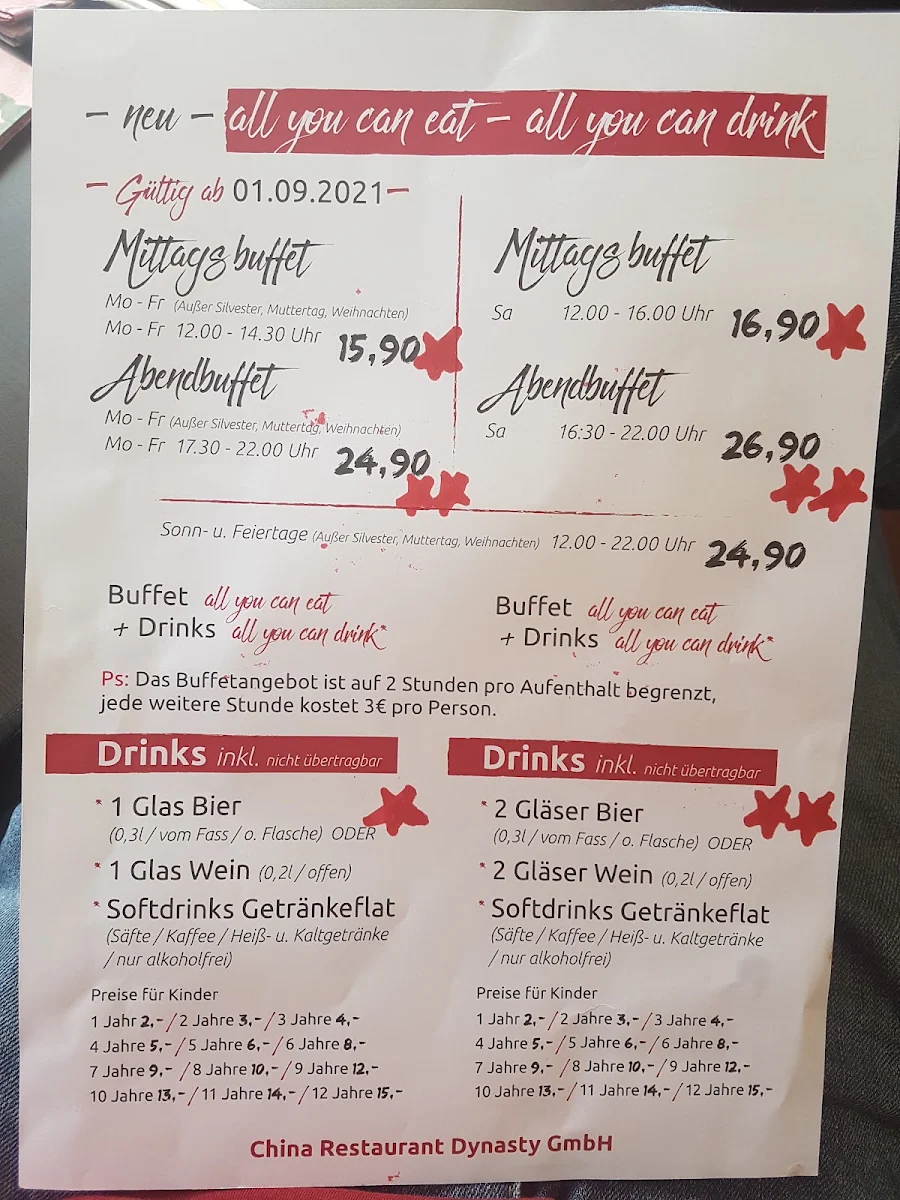 – neu – all you can eat – all you can drink
– Gültig ab 01.09.2021 –
Mittagsbuffet
Mo - Fr (Außer Silvester, Muttertag, Weihnachten)
Mo - Fr 12.00 - 14.30 Uhr 15,90
Abendbuffet
Mo - Fr (Außer Silvester, Muttertag, Weihnachten)
Mo - Fr 17.30 - 22.00 Uhr 24,90
Mittagsbuffet
Sa 12.00 - 16.00 Uhr 16,90
Abendbuffet
Sa 16:30 - 22.00 Uhr 26,90
Sonn- u. Feiertage (Außer Silvester, Muttertag, Weihnachten) 12.00 - 22.00 Uhr 24,90
Buffet all you can eat
+ Drinks all you can drink*
Buffet all you can eat
+ Drinks all you can drink*
Ps: Das Buffetangebot ist auf 2 Stunden pro Aufenthalt begrenzt,
jede weitere Stunde kostet 3€ pro Person.
Drinks inkl. nicht übertragbar
* 1 Glas Bier
(0,3l / vom Fass / o. Flasche) ODER
* 1 Glas Wein (0,2l / offen)
* Softdrinks Getränkeflat
(Säfte / Kaffee / Heiß- u. Kaltgetränke
/ nur alkoholfrei)
Preise für Kinder
1 Jahr 2,- / 2 Jahre 3,- / 3 Jahre 4,-
4 Jahre 5,- / 5 Jahre 6,- / 6 Jahre 8,-
7 Jahre 9,- / 8 Jahre 10,- / 9 Jahre 12,-
10 Jahre 13,- / 11 Jahre 14,- / 12 Jahre 15,-
Drinks inkl. nicht übertragbar
* 2 Gläser Bier
(0,3l / vom Fass / o. Flasche) ODER
* 2 Gläser Wein (0,2l / offen)
* Softdrinks Getränkeflat
(Säfte / Kaffee / Heiß- u. Kaltgetränke
/ nur alkoholfrei)
Preise für Kinder
1 Jahr 2,- / 2 Jahre 3,- / 3 Jahre 4,-
4 Jahre 5,- / 5 Jahre 6,- / 6 Jahre 8,-
7 Jahre 9,- / 8 Jahre 10,- / 9 Jahre 12,-
10 Jahre 13,- / 11 Jahre 14,- / 12 Jahre 15,-
China Restaurant Dynasty GmbH